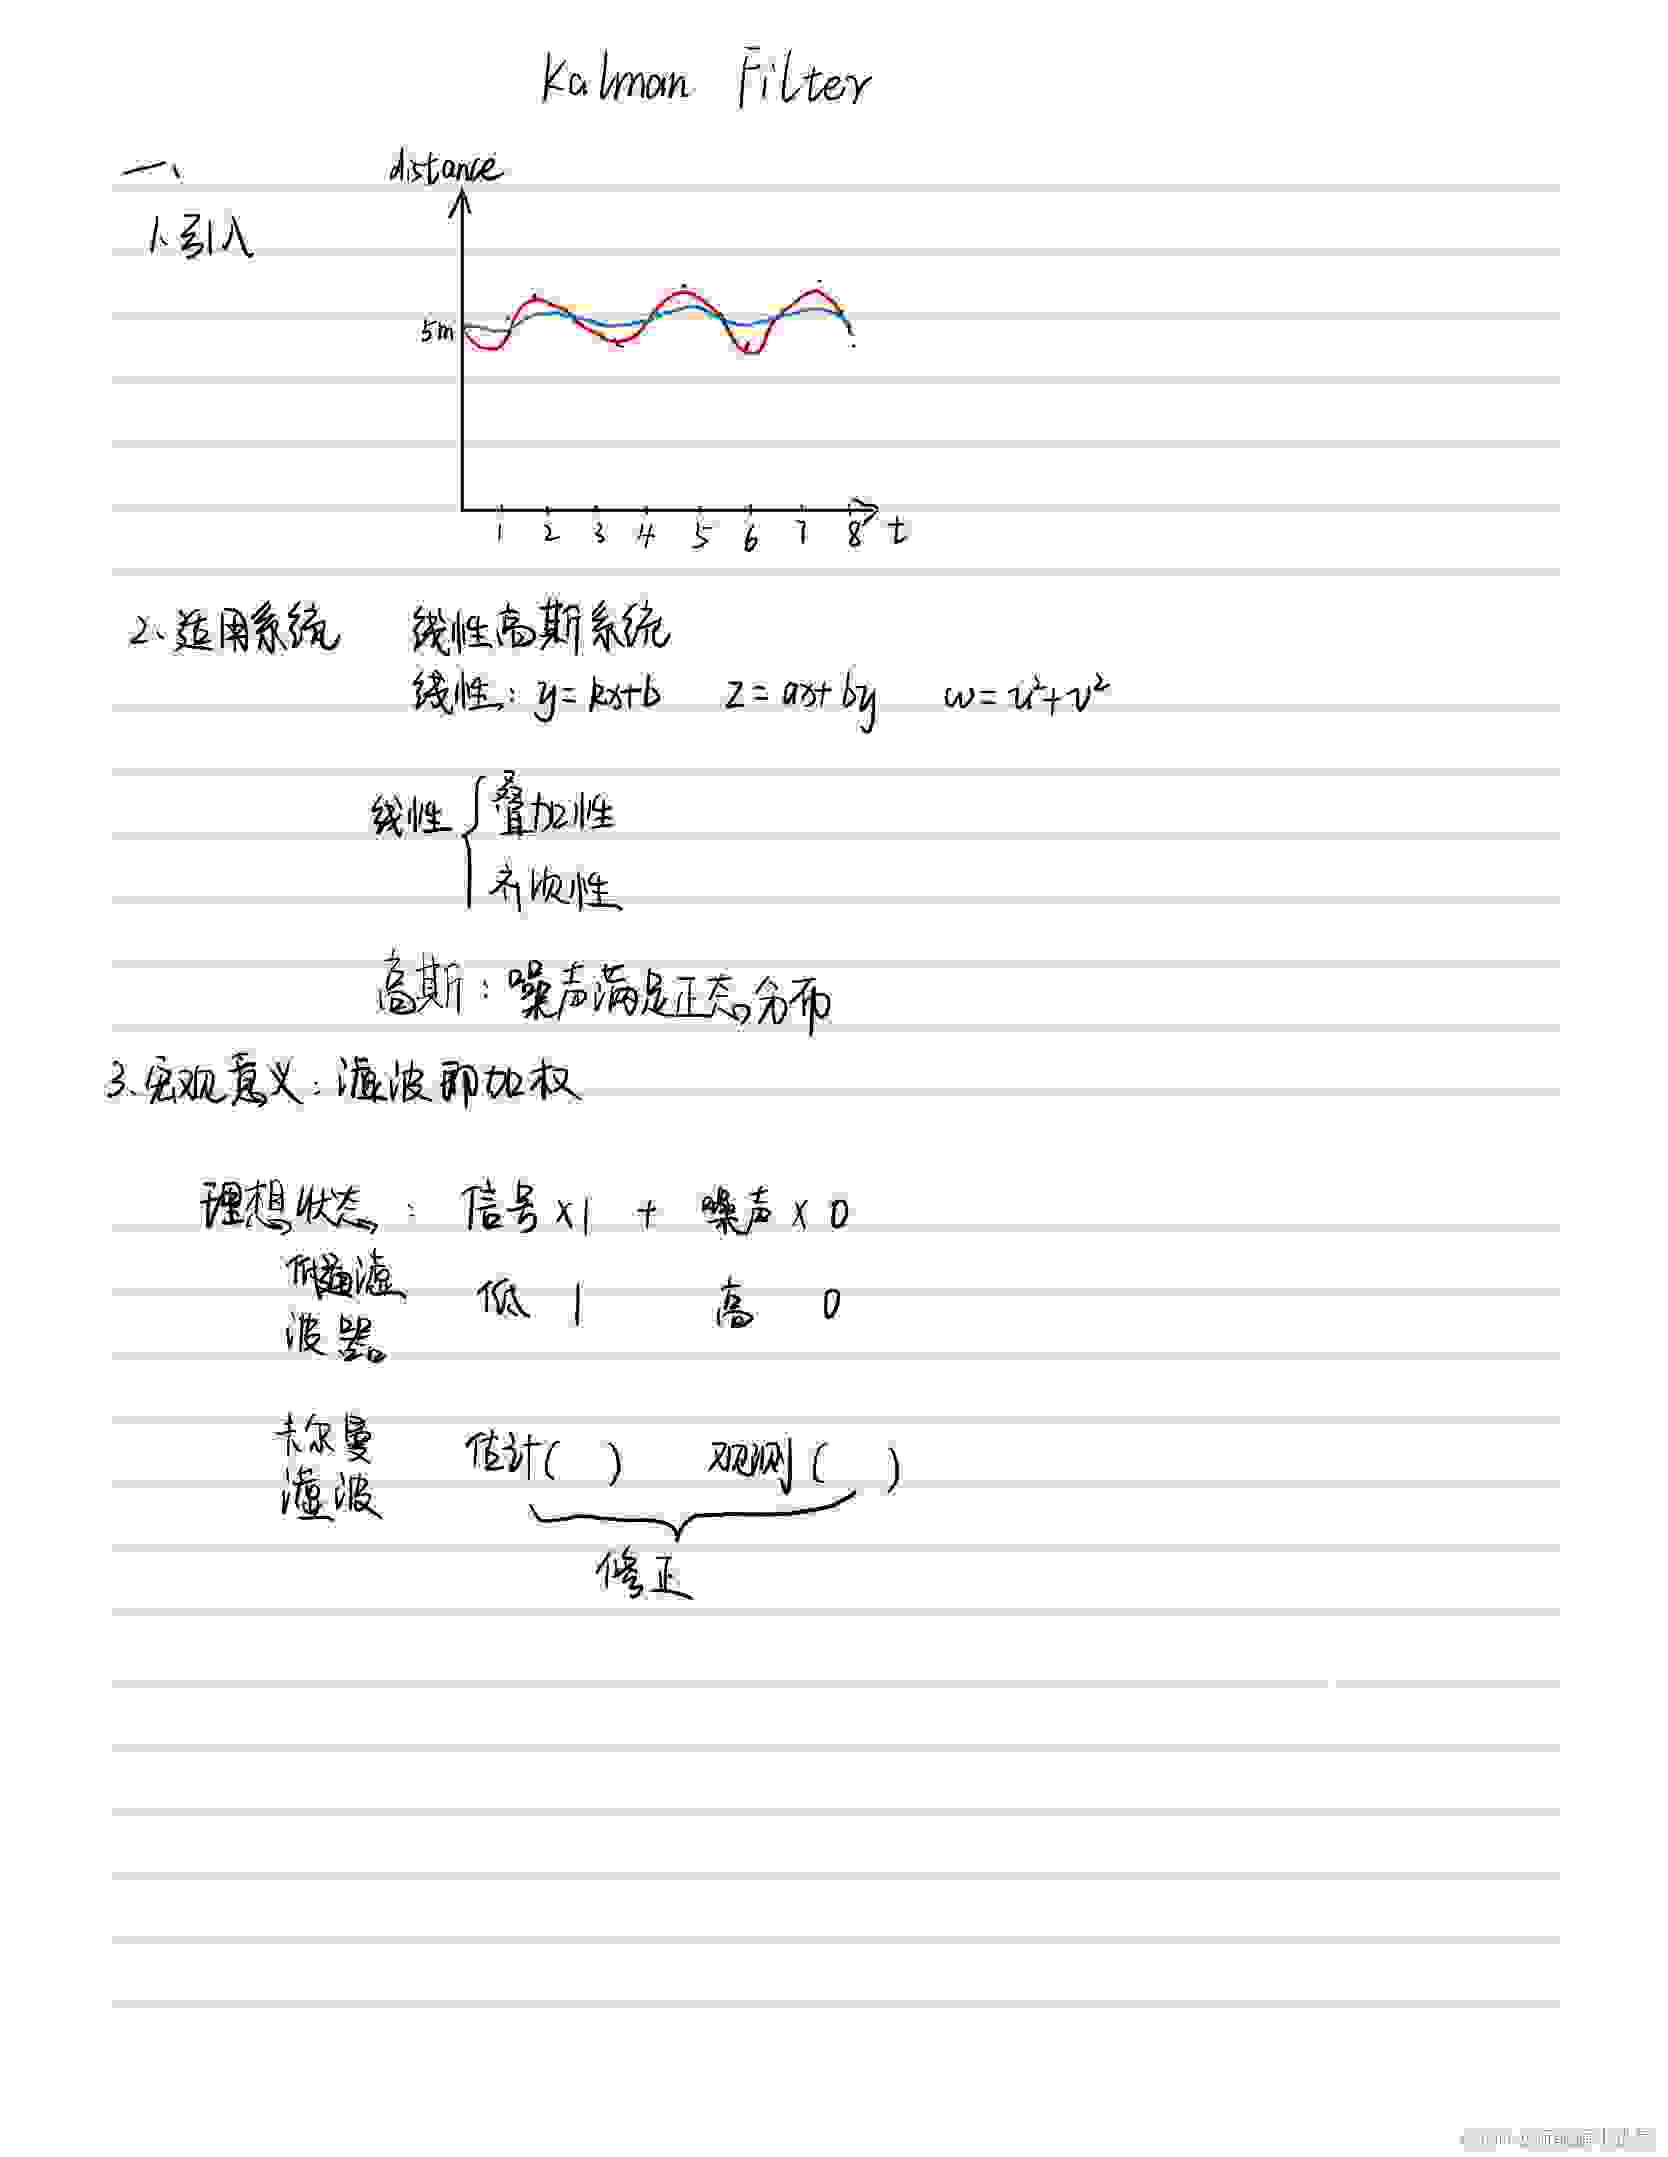 Kalman Filter
一、
distance
1.引入
5m
1 2 3 4 5 6 7 8 t
2、适用系统 线性高斯系统
线性: y=kx+b z=ax+by w=u²+v²
线性 { 叠加性
齐次性
高斯: 噪声满足正态分布
3、宏观意义: 滤波即加权
理想状态: 信号×1 + 噪声×0
低通滤
波器 低 1 高 0
卡尔曼
滤波 估计( ) 观测( )
修正